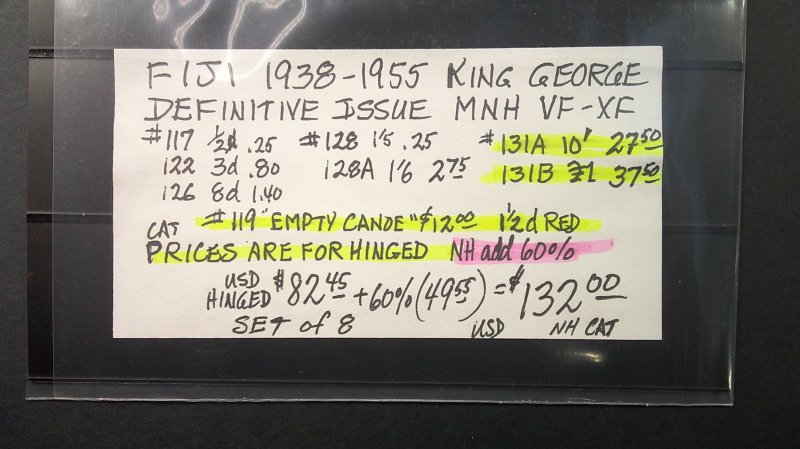 FIJI 1938-1955 KING GEORGE
DEFINITIVE ISSUE MNH VF-XF
#117 1/2d .25 #128 1'5 .25 #131A 10' 27.50
122 3d .80 128A 1'6 2.75 131B £1 37.50
126 8d 1.40
CAT #119 "EMPTY CANOE" $12.00 1 1/2d RED
PRICES ARE FOR HINGED NH add 60%
USD HINGED $82.45 + 60% (49.55) = $132.00
SET of 8 USD NH CAT